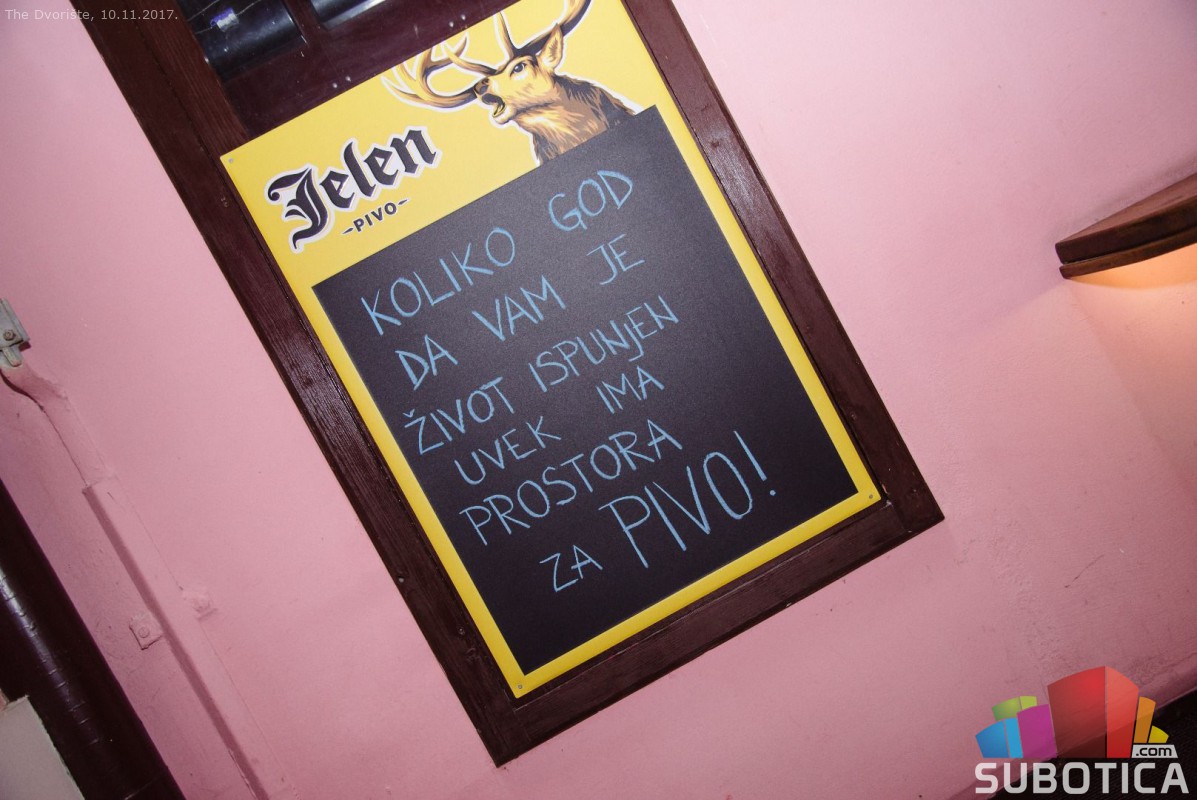 The Dvoriste, 10.11.2017.
Jelen
-PIVO-
KOLIKO GOD
DA VAM JE
ŽIVOT ISPUNJEN
UVEK IMA
PROSTORA
ZA PIVO!
.com
SUBOTICA